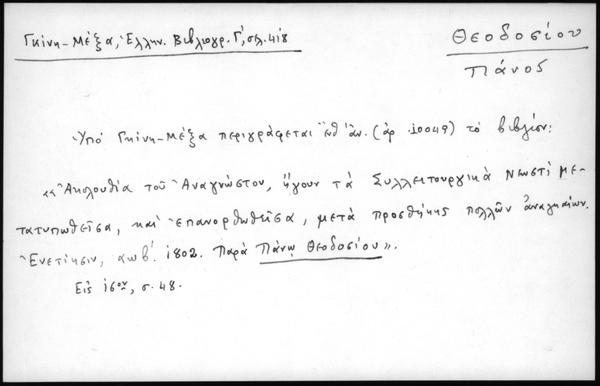 Γκίνη-Μέξα, Ἑλλην. Βιβλιογρ. Γ', σελ. 418
Θεοδοσίου
Πάνος
Ὑπό Γκίνη-Μέξα περιγράφεται (ἀρ. 10049) τό βιβλίον:
«Ἀκολουθία τοῦ Ἀναγνώστου, ἤγουν τά Συλλειτουργικά Νεωστί με-
τατυπωθεῖσα, καί ἐπανορθωθεῖσα, μετά προσθήκης πολλῶν ἀναγκαίων.
Ἐνετίησιν, αωβ'. 1802. Παρά Πάνῳ Θεοδοσίου».
Εἰς 16ον, σ. 48.